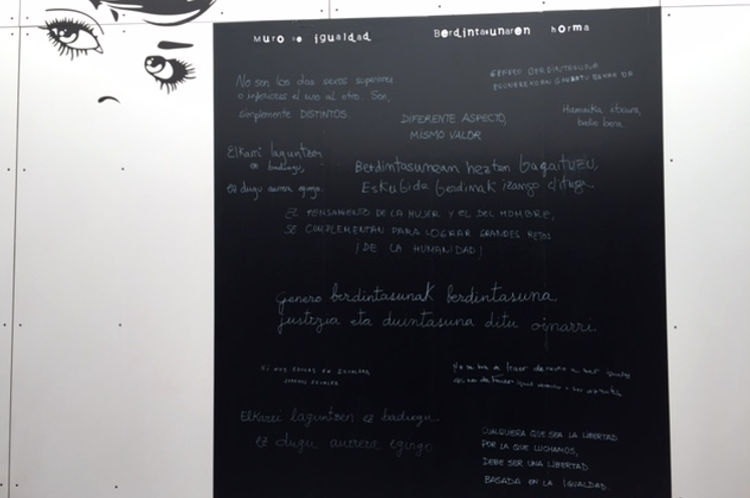 Muro de igualdad
Berdintasunaren horma
No son los dos sexos superiores
o inferiores el uno al otro. Son,
simplemente DISTINTOS
GENERO BERDINTASUNA
DIFERENTE ASPECTO,
MISMO VALOR
Hamaika itxura,
balio bera.
Elkarri laguntzen
ez badugu,
ez dugu aurrera egingo.
Berdintasunean hezten bagaituzu,
Eskubide berdinak izango ditugu.
EL PENSAMIENTO DE LA MUJER Y EL DEL HOMBRE,
SE COMPLEMENTAN PARA LOGRAR GRANDES RETOS
¡DE LA HUMANIDAD!
Genero berdintasunak berdintasuna
justizia eta duintasuna ditu oinarri.
SI NOS EDUCAS EN IGUALDAD
SEREMOS IGUALES
No se trata a traer derecho a ser iguales
Elkarri laguntzen ez badugu.
ez dugu aurrera egingo
CUALQUIERA QUE SEA LA LIBERTAD
POR LA QUE LUCHAMOS,
DEBE SER UNA LIBERTAD
BASADA EN LA IGUALDAD.